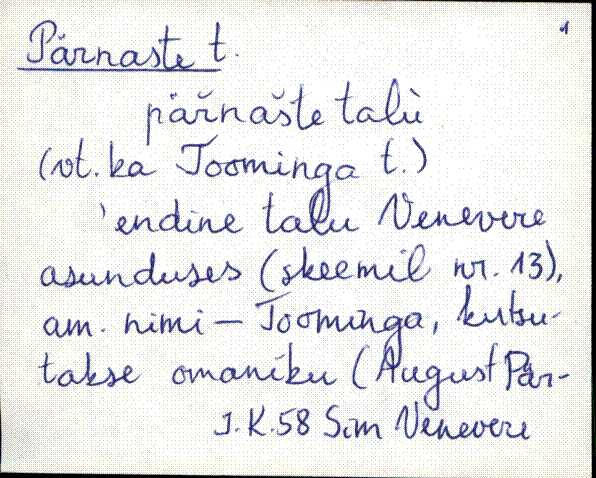 1
Pärnaste t.
pär̆năšte talù
(vt. ka Toominga t.)
'endine talu Venevere
asunduses (skeemil nr. 13),
am. nimi – Toominga, kutsu-
takse omaniku (August Pär-
J.K.58 Sim Venevere